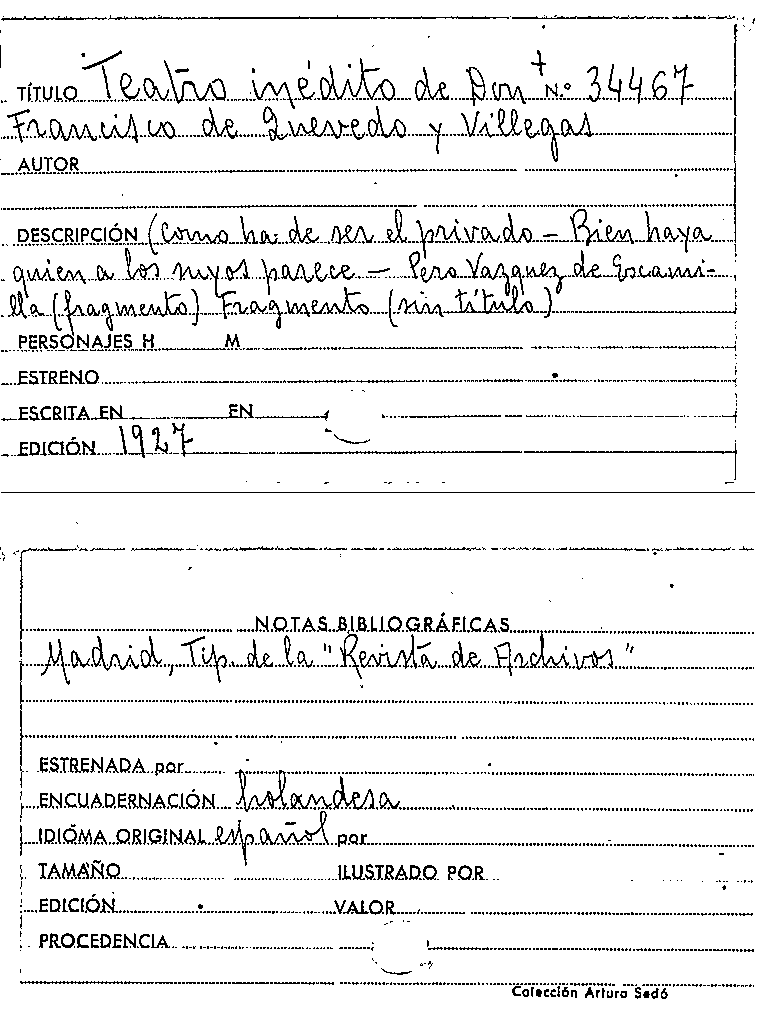 TÍTULO Teatro inédito de Don N.º 34467
Francisco de Quevedo y Villegas
AUTOR
DESCRIPCIÓN (Como ha de ser el privado - Bien haya
quien a los suyos parece - Pero Vazquez de Escami-
lla (fragmento) Fragmento (sin título)
PERSONAJES H M
ESTRENO
ESCRITA EN EN
EDICIÓN 1927
NOTAS BIBLIOGRÁFICAS
Madrid, Tip. de la "Revista de Archivos"
ESTRENADA por
ENCUADERNACIÓN holandesa
IDIOMA ORIGINAL español por
TAMAÑO ILUSTRADO POR
EDICIÓN VALOR
PROCEDENCIA
Colección Arturo Sedó